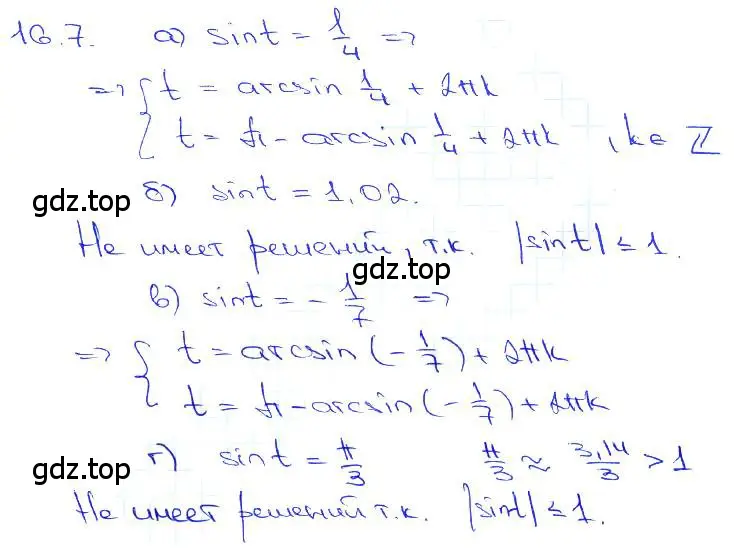 16.7. а) sint = 1/4 =>
=> { t = arcsin 1/4 + 2πk
t = π - arcsin 1/4 + 2πk , k∈ ℤ
б) sint = 1,02.
gdz.top
Не имеет решений, т.к. |sint| ≤ 1.
gdz.top
в) sint = - 1/7 =>
=> { t = arcsin (- 1/7) + 2πk
t = π - arcsin (- 1/7) + 2πk
г) sint = π/3 π/3 ≈ 3,14/3 > 1
gdz.top
Не имеет решений т.к. |sint| ≤ 1.